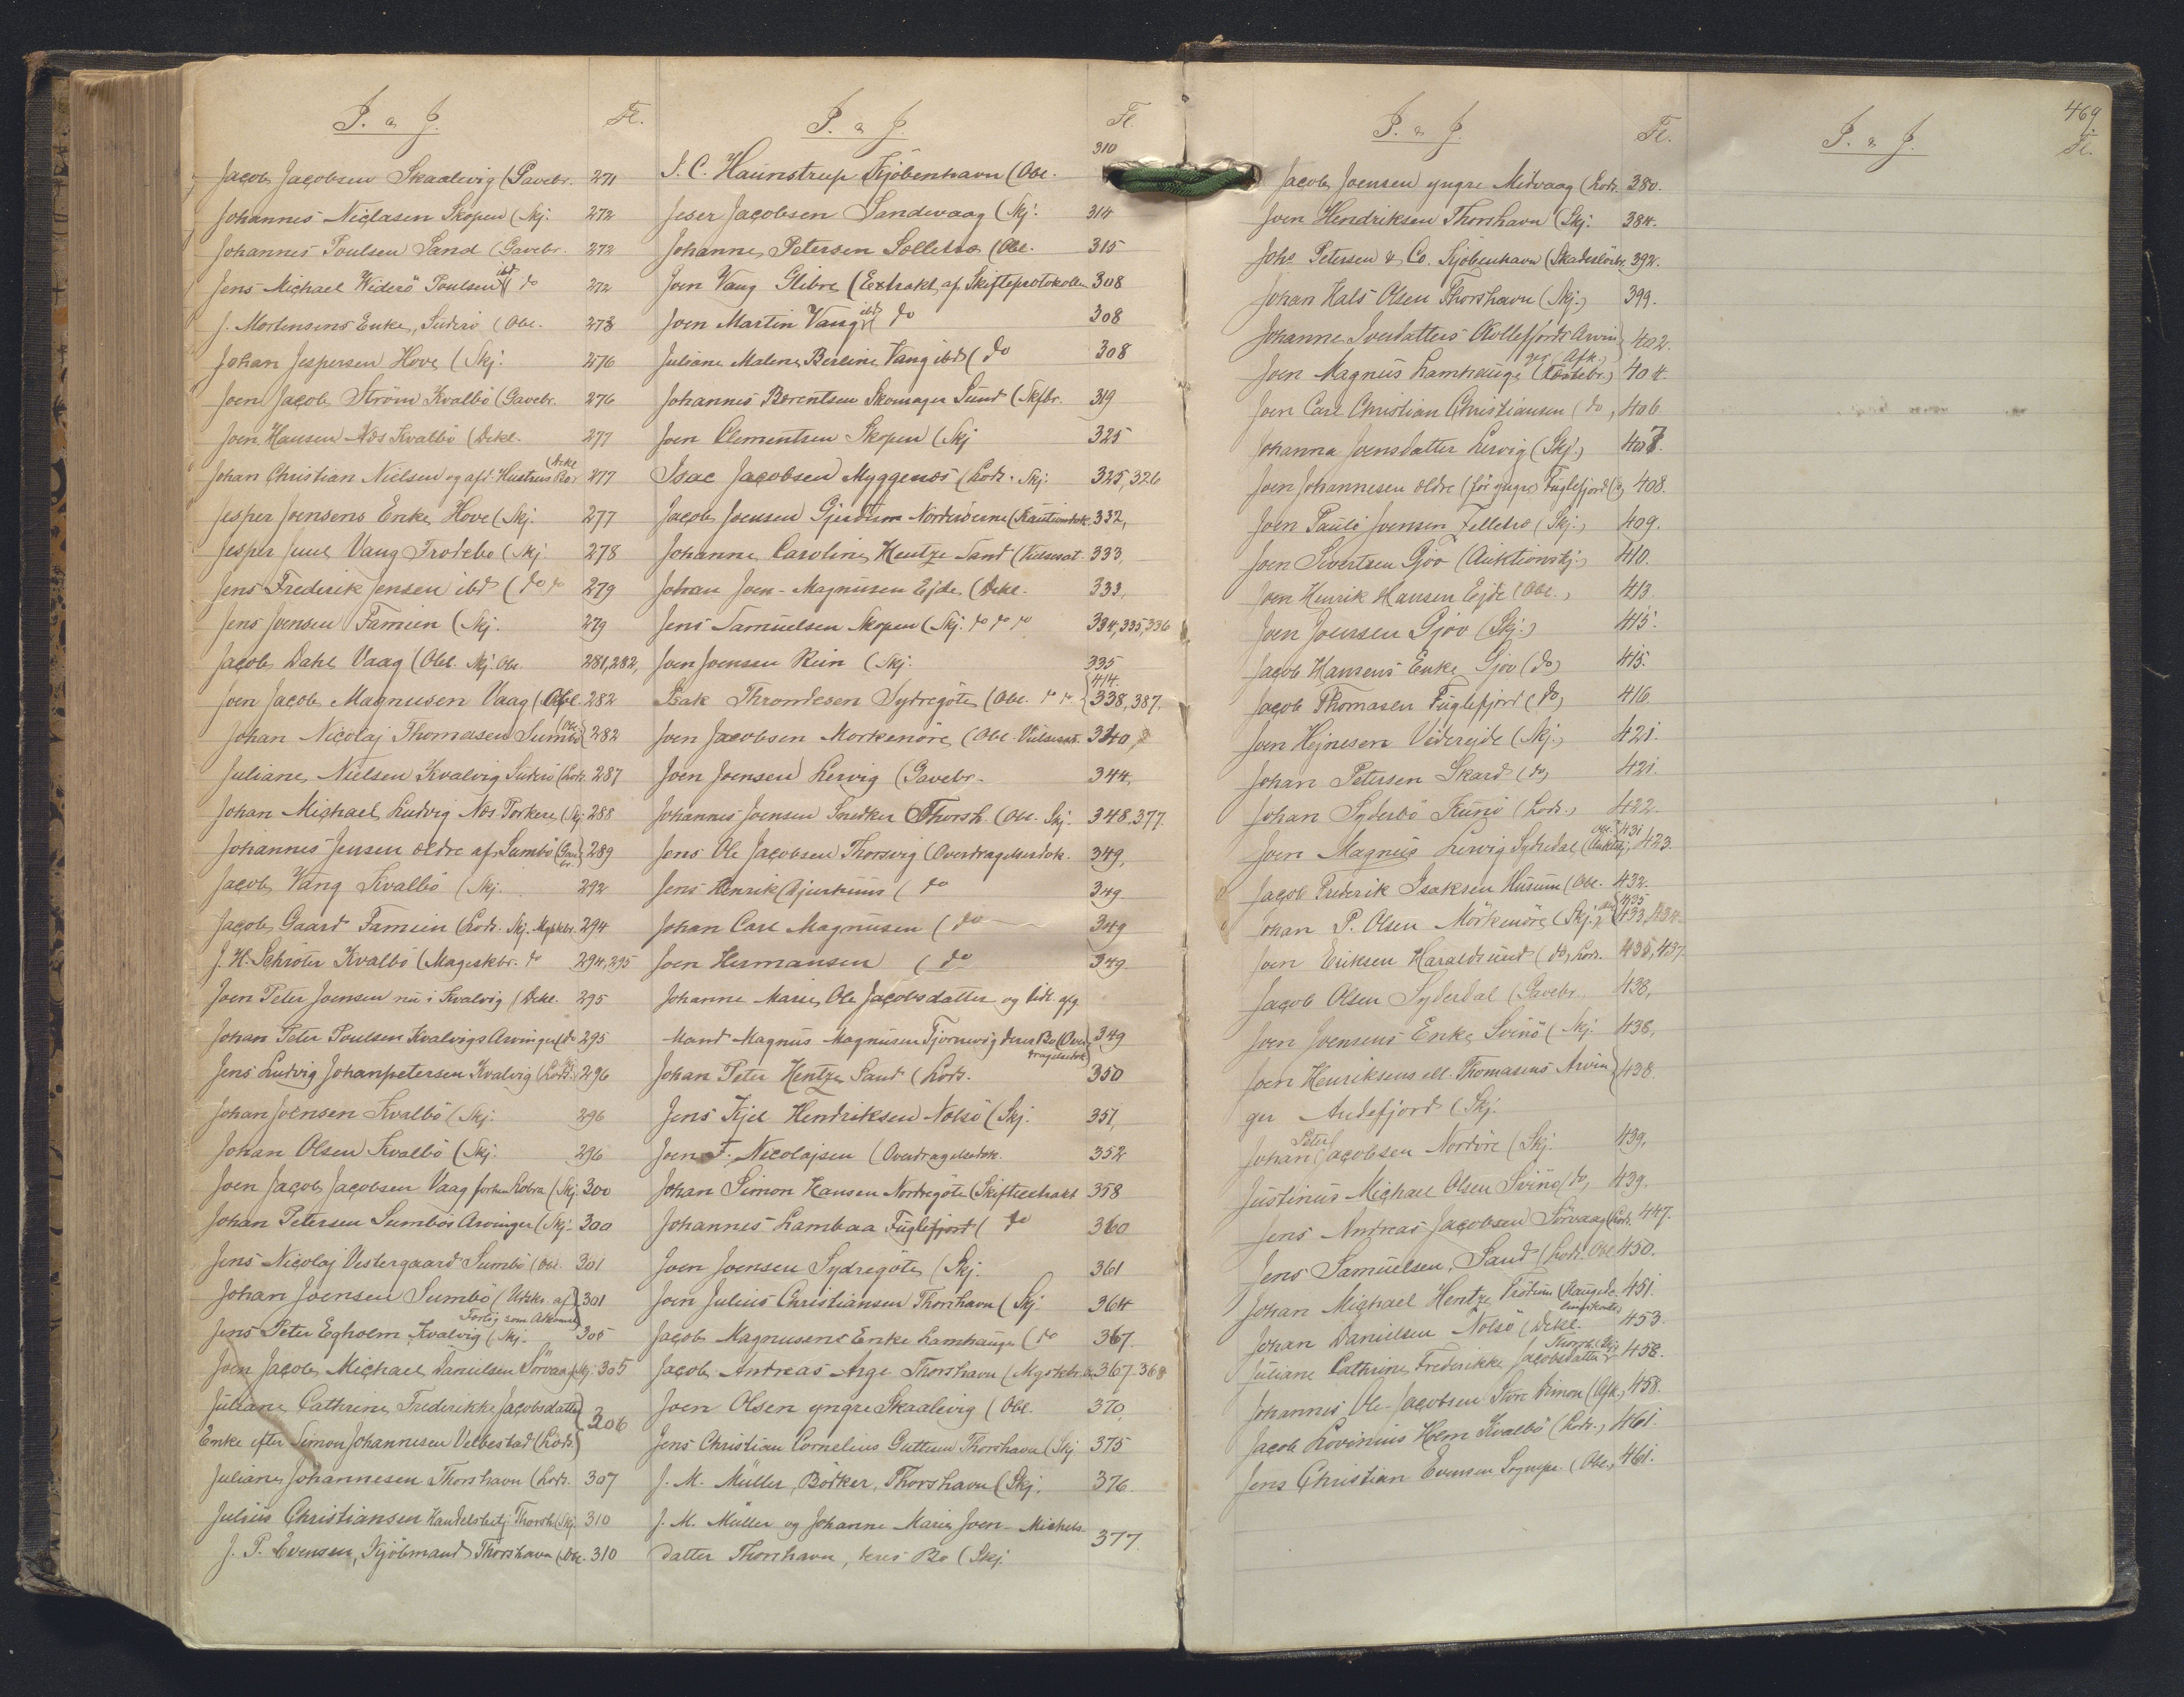 I. & J. Fl.
Jacob Jacobsen Skaalevig (Gavebr. 271
Johannes Niclasen Skopen (Skj. 272
Johannes Poulsen Sand (Gavebr. 272
Jens Michael Widerö Poulsen ibd ( do 272
J. Mortensens Enke, Suderö (Obl. 273
Johan Jespersen Hove (Skj. 276
Joen Jacob Ström Kvalbö (Gavebr. 276
Joen Hansen Næs Kvalbö (Dekl. 277
Johan Christian Nielsen og afd. Hustrus Bo (Dekl 277
Jesper Joensens Enke Hove (Skj. 277
Jesper Juul Vang Frodebo (Skj 278
Jens Frederik Jensen ibd (do do 279
Jens Joensen Famien (Skj. 279
Jacob Dahl Vaag (Obl. Skj. Obl. 281,282,
Joen Jacob Magnusen Vaag (Obl. 282
Johan Nicolaj Thomasen Sumbö (Obl. 282
Juliane Nielsen Kvalvig Suderö (Lods. 287
Johan Michael Ludvig Næs Porkere (Skj. 288
Johannes Jensen ældre af Sumbö (Gavebr. 289
Jacob Vang Kvalbö (Skj. 292
Jacob Gaard Famien (Lods. Skj. Mgskbr. 294
J. H. Schröter Kvalbö (Mageskbr. do 294,295
Joen Peter Joensen nu i Kvalvig (Dekl. 295
Johan Peter Poulsen Kvalvigs Arvinger (do 295
Jens Ludvig Johanpetersen Kvalvig (Lods. 296
Johan Joensen Kvalbö (Skj. 296
Johan Olsen Kvalbö (Skj. 296
Joen Jacob Jacobsen Vaag forhen Lobra (Skj. 300
Johan Petersen Sumbös Arvinger (Skj. 300
Jens Nicolaj Vestergaard Sumbö (Obl. 301
Johan Joensen Sumbö (Udskr. af 301
Jens Peter Egholm Kvalvig (Skj. 305
Joen Jacob Michael Danielsen Sörvaag (Skj. 305
Juliane Cathrine Frederikke Jacobsdatter
Enke efter Simon Johannesen Velbestad (Lods.) 306
Juliane Johannesen Thorshavn (Lods. 307
Julius Christiansen Handelsbetj. Thorsh. (Skj. 310
J. P. Evensen, Kjöbmand Thorshavn (Obl. 310
I. & J. Fl.
J. C. Haunstrup Kjöbenhavn (Obl. 310
Jeser Jacobsen Sandevaag (Skj. 314
Johanne Petersen Selletræ (Obl. 315
Joen Vang Glibre (Extrakt af Skifteprotokollen 308
Joen Martin Vang ibd ( do 308
Juliane Malene Berline Vang ibd ( do 308
Johannes Berentsen Skomager Sund (Skfbr. 319
Joen Clementsen Skopen (Skj 325
Isac Jacobsen Myggenæs (Lods. Skj. 325,326
Jacob Joensen Gjerdum Norderöerne (Kautionsdok. 332,
Johanne Caroline Hentze Sand (Vielsesat. 333,
Johan Joen-Magnusen Ejde (Dekl. 333,
Jens Samuelsen Skopen (Skj. do do do 334,335,336
Joen Joensen Rein (Skj. 335
Isak Throndesen Sydregöte (Obl. do do 414. 338,387.
Joen Jacobsen Morkenöre (Obl. Vielsesat. 340,
Joen Joensen Lervig (Gavebr. 344,
Johannes Joensen Snedker Thorsh. (Obl. Skj. 348,377.
Jens Ole Jacobsen Thorsvig (Overdragelsesdok. 349,
Jens Henrik Djurhuus ( do 349
Johan Carl Magnusen ( do 349
Joen Hermansen ( do 349
Johanne Marie Ole Jacobsdatter og
Mand Magnus Magnusen Tjörnevig deres Bo (Over- 349
dragelsesdok)
Johan Peter Hentze Sand (Lods. 350
Jens Kjel Hendriksen Nolsö (Skj. 351,
Joen F. Nicolajsen (Overdragelsesdok. 352
Johan Simon Hansen Nordregöte (Skifteextrakt 358
Johannes Lambaa Fuglefjord ( do 360
Joen Joensen Sydregöte (Skj. 361
Joen Julius Christiansen Thorshavn (Skj. 364
Jacob Magnusens Enke Lamhauge (do 367.
Jacob Andreas Arge Thorshavn (Mgskbr. 367.368
Joen Olsen yngre Skaalevig (Obl. 370,
Jens Christian Cornelius Guttesen Thorshavn (Skj 375
J. M. Müller, Bödker, Thorshavn (Skj. 376.
J. M. Müller og Johanne Marie Joen-Michels-
datter Thorshavn, deres Bo (Skj. 377.
I. & J. Fl.
Jacob Joensen yngre Midvaag (Lods. 380.
Joen Hendriksen Thorshavn (Skj. 384.
Johs Petersen & Co. Kjöbenhavn (Skadeslösbr. 392.
Johan Hals Olsen Thorshavn (Skj.) 399.
Johanne Iversdatters Kollefjords Arvin 402.
Joen Magnus Lamhauge ger (Afk.) 404.
Joen Carl Christian Christiansen (do, 406
Johanna Joensdatter Lervig (Skj.) 407.
Joen Johannesen ældre (för yngre) Fuglefjord (do 408.
Joen Pauli Joensen Selletræ (Skj.) 409.
Joen Sivertsen Gjov (Auktionskj.) 410.
Joen Henrik Hansen Ejde (Obl., 413.
Joen Joensen Gjov (Skj.) 415.
Jacob Hansens Enke Gjov (do) 415.
Jacob Thomasen Fuglefjord (do) 416
Joen Hejnesen Viderejde (Skj.) 421.
Johan Petersen Skard (do) 421.
Johan Syderbö Kunö (Lods.) 422.
Joen Magnus Lervig Syderdal (Auktskj. Obl. 431 423.
Jacob Frederik Isaksen Husum (Obl. 432.
Johan P. Olsen Mörkenöre (Skj. 435 433,434
Joen Eriksen Haraldsund (do, Lods. 435,437.
Jacob Olsen Syderdal (Gavebr. 438,
Joen Joensens Enke Svinö (Skj. 438,
Joen Henriksens ell. Thomasens Arvin 438.
ger Andefjord (Skj.
Johan Peter Jacobsen Nordöre (Skj. 439,
Justinus Michael Olsen Svinö (do, 439.
Jens Andreas Jacobsen Sörvaag (Lods. 447.
Jens Samuelsen, Sand (Lods. Obl. 450.
Johan Michael Hentze Trödum 451.
Johan Danielsen Nolsö (Dekl. 453.
Juliane Cathrine Frederikke Jacobsdatter Thorsh. (Skj 458.
Johannes Ole-Jacobsen Store Dimon (Afk., 458.
Jacob Lovinius Holm Kvalbö (Lods., 461.
Jens Christian Evensen Sognepr. (Obl., 461.
469
I. & J. Fl.